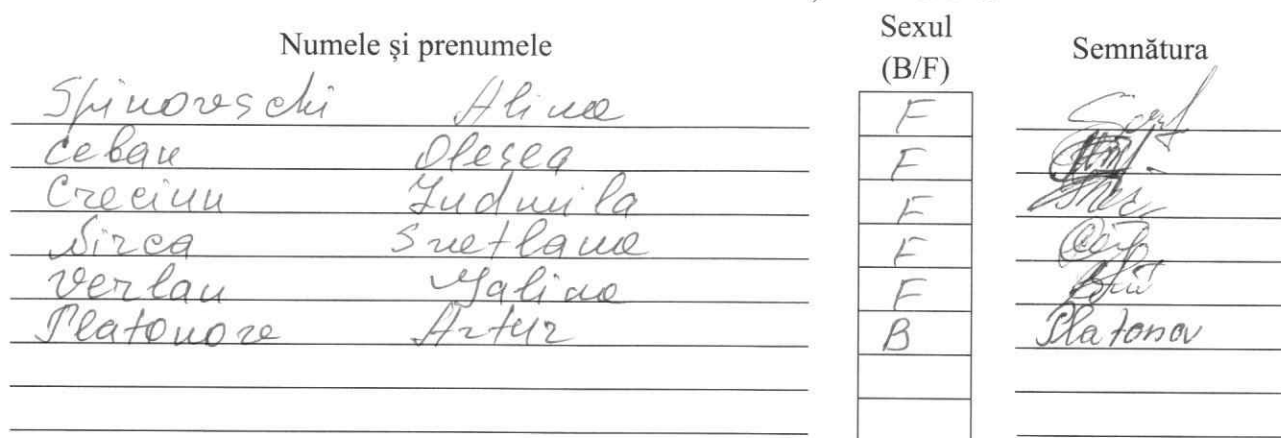 Numele și prenumele Sexul (B/F) Semnătura
Spinovschi Alina F
Ceban Olesea F
Creciun Ludmila F
Sîrca Svetlana F
Verlan Galina F
Platonov Artur B Platonov